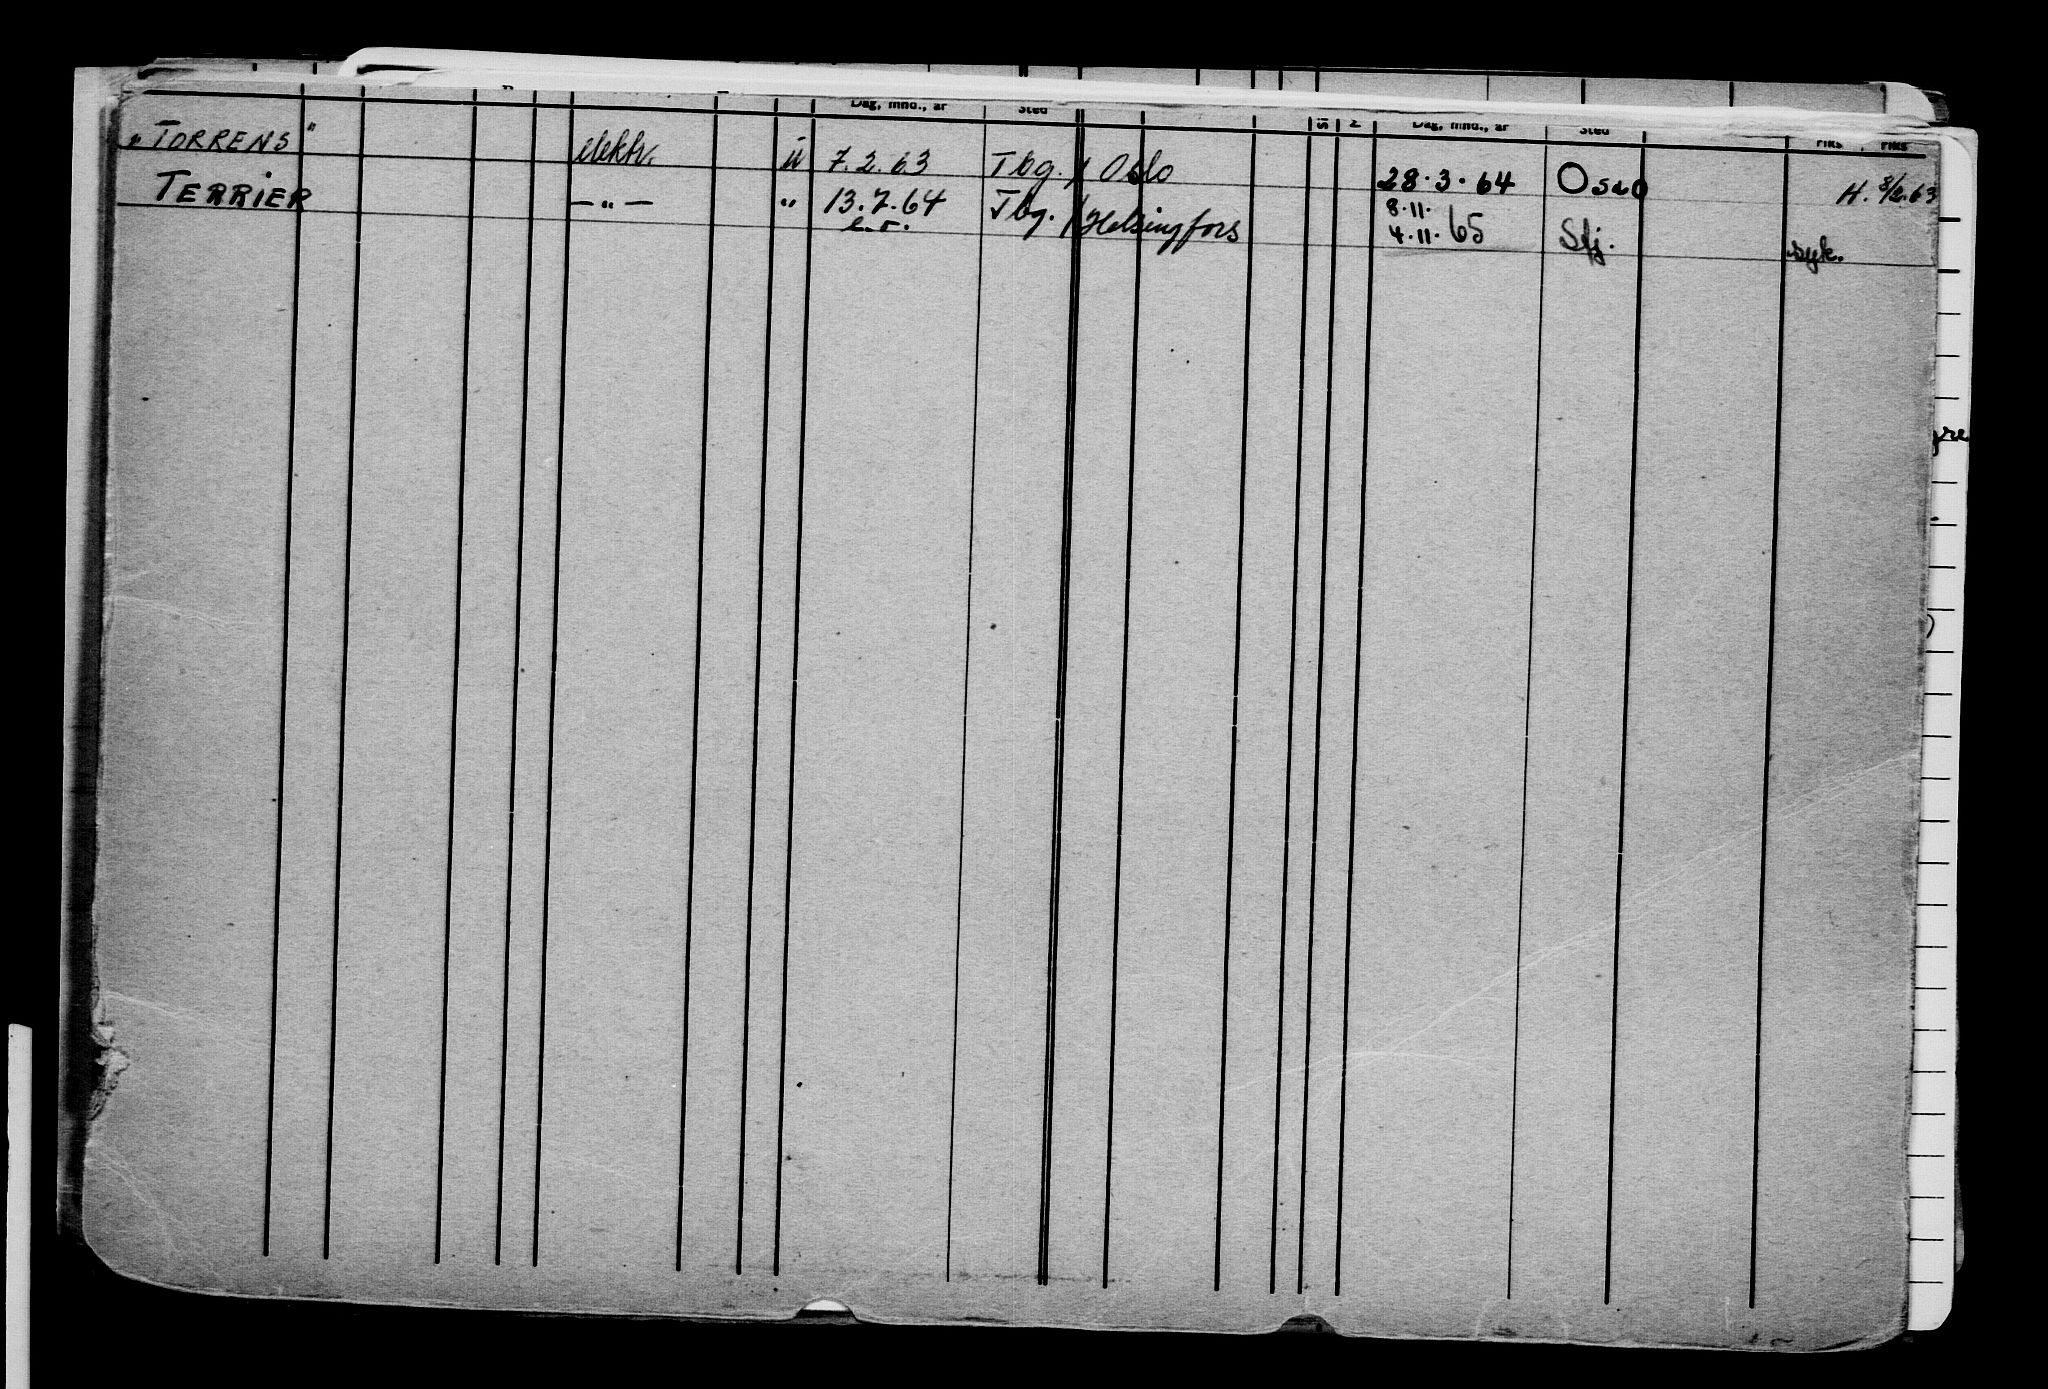 Dag, mnd., år Sted Dag, mnd., år Sted
„TORRENS" elektr. u 7.2.63 Tbg. / Oslo 28.3.64 Oslo H. 8/2.63
TERRIER —„— " 13.7.64 Tbg. / Helsingfors 8.11.
4.11.65 Sfj. syk.